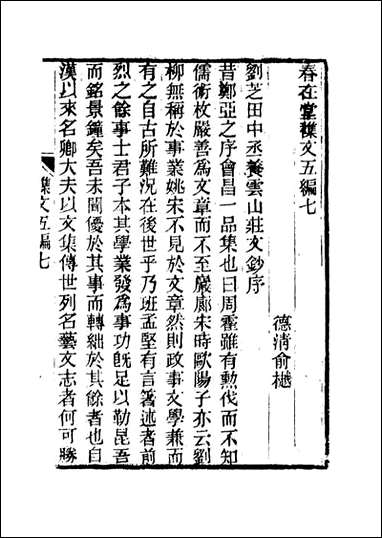 春在堂襍文五編七
德清俞樾
劉芝田中丞養雲山莊文鈔序
昔鄭亞之序會昌一品集也曰周霍雖有勲伐而不知
儒術枚嚴善為文章而不至嚴廊宋時歐陽子亦云劉
柳無稱於事業姚宋不見於文章然則政事文學兼而
有之自古所難況在後世乎乃班孟堅有言箸述者前
烈之餘事士君子本其學業發為事功旣足以勒昆吾
而銘景鐘矣吾未聞優於其事而轉絀於其餘者也自
漢以來名卿大夫以文集傳世列名藝文志者何可勝
襍文五編七